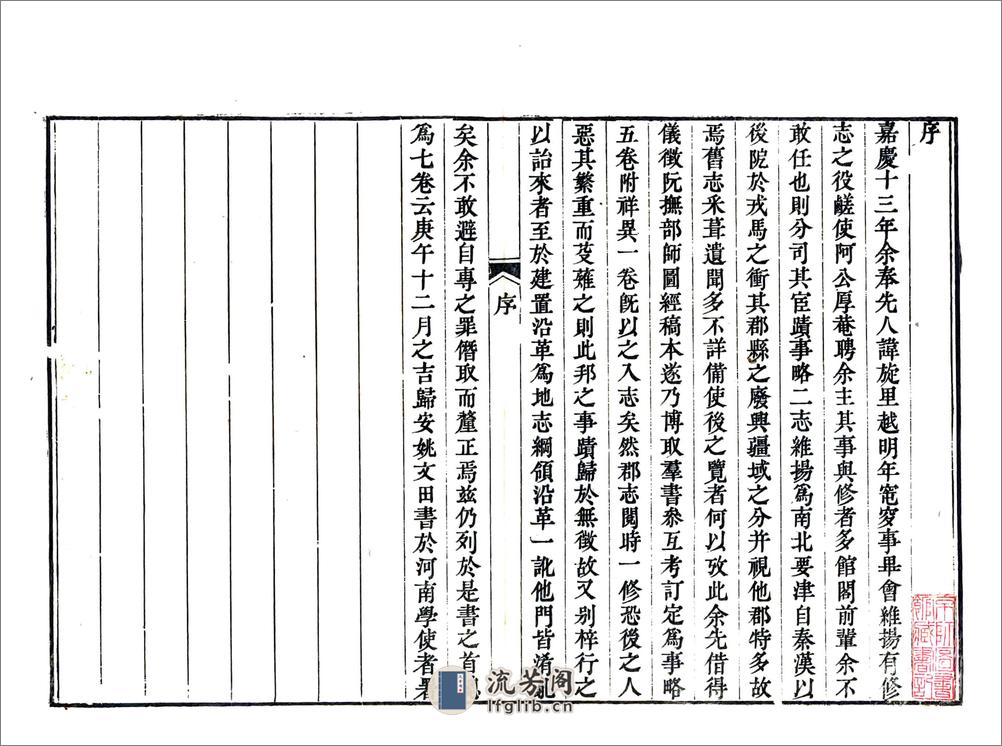 序
嘉慶十三年余奉先人諱旋里越明年窀穸事畢會維揚有修
志之役鹺使阿公厚菴聘余主其事與修者多館閣前輩余不
敢任也則分司其宦蹟事略二志維揚爲南北要津自秦漢以
後阸於戎馬之衝其郡縣之廢興疆域之分并視他郡特多故
焉舊志采葺遺聞多不詳備使後之覽者何以攷此余先借得
儀徵阮撫部師圖經稿本遂乃博取羣書叅互考訂定爲事略
五卷附祥異一卷旣以之入志矣然郡志閱時一修恐後之人
惡其繁重而芟薙之則此邦之事蹟歸於無徵故又别梓行之
以詒來者至於建置沿革爲地志綱領沿革一訛他門皆淆亂
序
矣余不敢避自專之罪僭取而釐正焉兹仍列於是書之首
爲七卷云庚午十二月之吉歸安姚文田書於河南學使者署
流芳阁
lfglib.cn